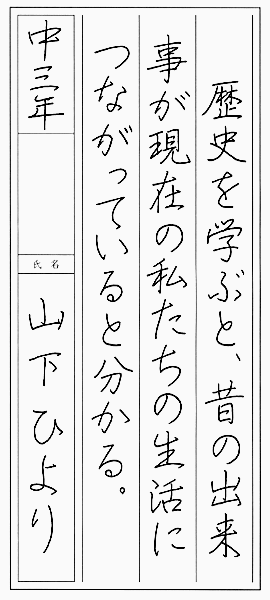 歴史を学ぶと、昔の出来
事が現在の私たちの生活に
つながっていると分かる。
中三年
氏名
山下ひより